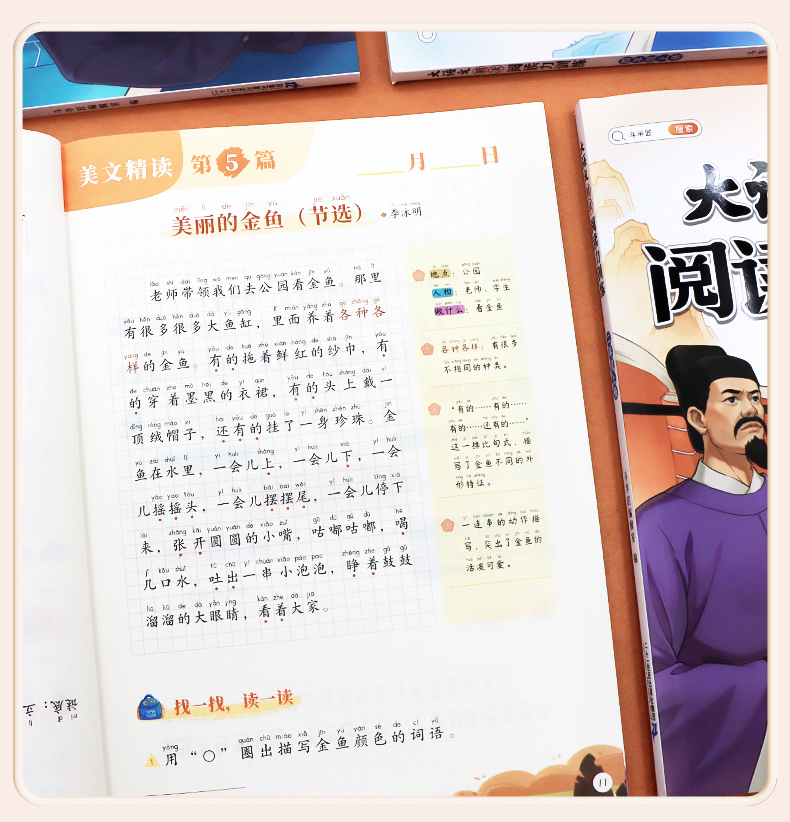 美文精读 第5篇
月 日
měi lì de jīn yú jié xuǎn
美丽的金鱼（节选） 李沐明
lǎo shī dài lǐng wǒ men qù gōng yuán kàn jīn yú nà lǐ
老师带领我们去公园看金鱼。那里
yǒu hěn duō hěn duō dà yú gāng lǐ miàn yǎng zhe gè zhǒng gè
有很多很多大鱼缸，里面养着各种各
yàng de jīn yú yǒu de tuō zhe xiān hóng de shā jīn yǒu
样的金鱼。有的拖着鲜红的纱巾，有
de chuān zhe mò hēi de yī qún yǒu de tóu shàng dài yī
的穿着墨黑的衣裙，有的头上戴一
dǐng róng mào zi hái yǒu de guà le yì shēn zhēn zhū jīn
顶绒帽子，还有的挂了一身珍珠。金
yú zài shuǐ lǐ yí huìr shàng yí huìr xià yí huìr
鱼在水里，一会儿上，一会儿下，一会
yáo yao tóu yí huìr bǎi bai wěi yí huìr tíng xià
儿摇摇头，一会儿摆摆尾，一会儿停下
lái zhāng kāi yuán yuán de xiǎo zuǐ gū dū gū dū hē
来，张开圆圆的小嘴，咕嘟咕嘟，喝
jǐ kǒu shuǐ tǔ chū yí chuàn xiǎo pào pao zhēng zhe gǔ gǔ
几口水，吐出一串小泡泡，睁着鼓鼓
liū liū de dà yǎn jīng kàn zhe dà jiā
溜溜的大眼睛，看着大家。
地点：公园
人物：老师、学生
做什么：看金鱼
各种各样：有很多
不相同的种类。
“有的……有的……
有的……还有的……”
这一排比句式，描
写了金鱼不同的外
形特征。
一连串的动作描
写，突出了金鱼的
活泼可爱。
找一找，读一读
yòng quān chū miáo xiě jīn yú yán sè de cí yǔ
1 用“○”圈出描写金鱼颜色的词语。
11
谜底：立
斗半匠 搜索
大
阅读